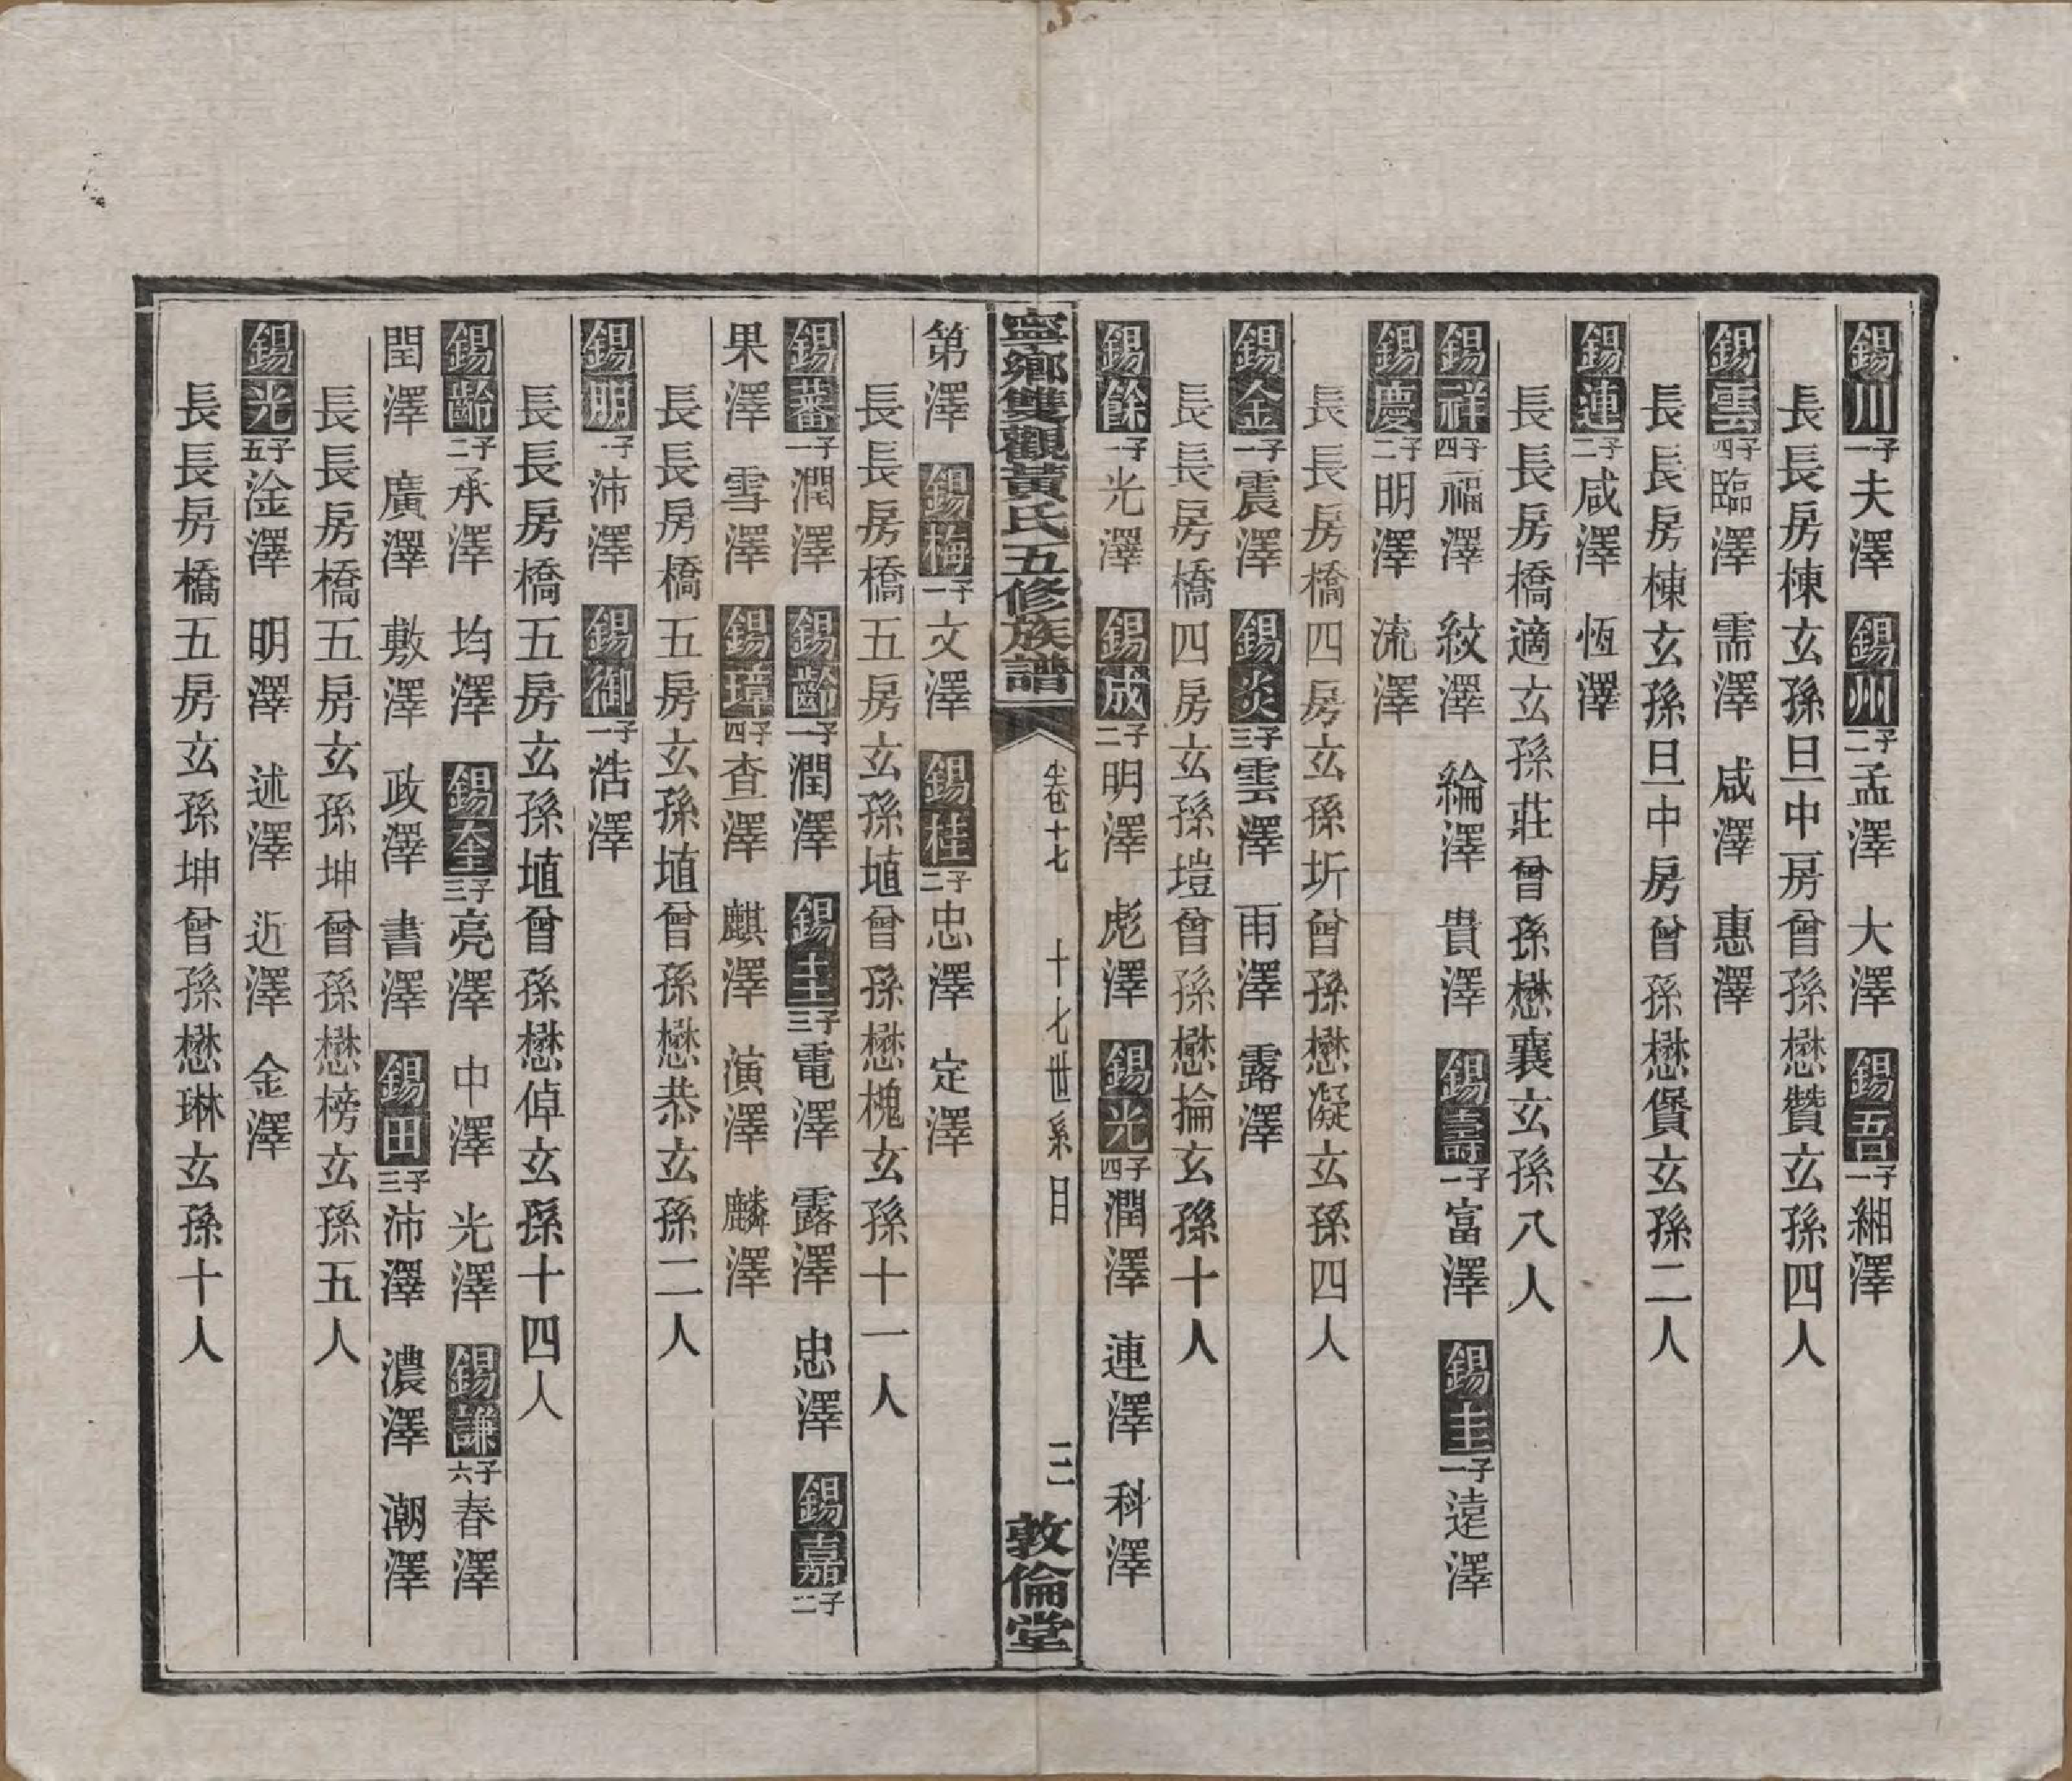 錫川子一夫澤 錫州子二孟澤 大澤 錫吾子一緗澤
長長房棟玄孫旦中房曾孫懋贊玄孫四人
錫雲子四臨澤 需澤 咸澤 惠澤
長長房棟玄孫旦中房曾孫懋賢玄孫二人
錫連子二咸澤 恆澤
長長房橋適玄孫莊曾孫懋襄玄孫八人
錫祥子四福澤 紋澤 綸澤 貴澤 錫壽子一富澤 錫圭子一遠澤
錫慶子二明澤 流澤
長長房橋四房玄孫圻曾孫懋凝玄孫四人
錫金子一震澤 錫炎子三雲澤 雨澤 露澤
長長房橋四房玄孫塏曾孫懋掄玄孫十人
錫餘子一光澤 錫成子二明澤 彪澤 錫光子四潤澤 連澤 科澤
寧鄉雙觀黃氏五修族譜 卷十七 十七世系目 三 敦倫堂
第澤 錫梅子一文澤 錫桂子二忠澤 定澤
長長房橋五房玄孫埴曾孫懋槐玄孫十一人
錫蕃子一潤澤 錫齡子一潤澤 錫圭子三電澤 露澤 忠澤 錫嘉子二
果澤 雪澤 錫璋子四查澤 麒澤 演澤 麟澤
長長房橋五房玄孫埴曾孫懋恭玄孫二人
錫明子一沛澤 錫御子一浩澤
長長房橋五房玄孫埴曾孫懋倬玄孫十四人
錫齡子二承澤 均澤 錫奎子三亮澤 中澤 光澤 錫謙子六春澤
閏澤 廣澤 敷澤 政澤 書澤 錫田子三沛澤 濃澤 潮澤
長長房橋五房玄孫坤曾孫懋榜玄孫五人
錫光子五淦澤 明澤 述澤 近澤 金澤
長長房橋五房玄孫坤曾孫懋琳玄孫十人